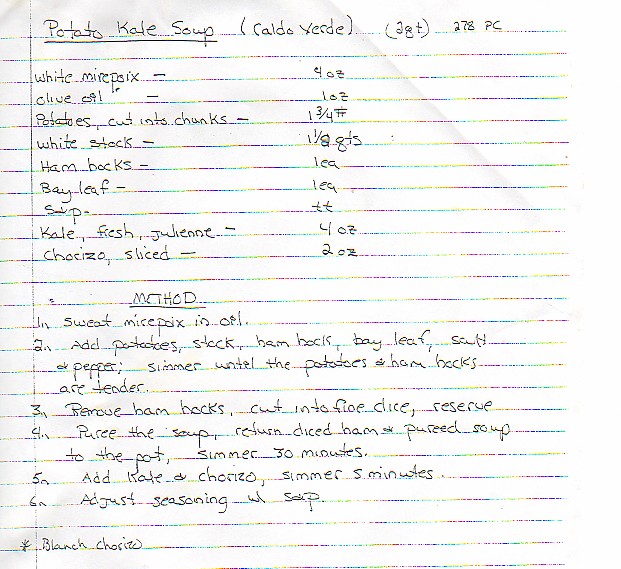 Potato Kale Soup (Caldo Verde) (2qt) 278 PC
white mirepoix - 4 oz
olive oil - 1 oz
Potatoes, cut into chunks - 1 3/4 #
white stock - 1 1/2 qts
Ham hocks - 1ea
Bay leaf - 1ea
S & p - tt
Kale, fresh, julienne - 4 oz
Chorizo, sliced - 2 oz
METHOD
1. sweat mirepoix in oil.
2. Add potatoes, stock, ham hock, bay leaf, salt
& pepper; simmer until the potatoes & ham hocks
are tender.
3. Remove ham hocks, cut into fine dice, reserve
4. Puree the soup, return diced ham & pureed soup
to the pot, simmer 30 minutes.
5. Add Kale & chorizo, simmer 5 minutes.
6. Adjust seasoning w/ s&p.
* Blanch chorizo